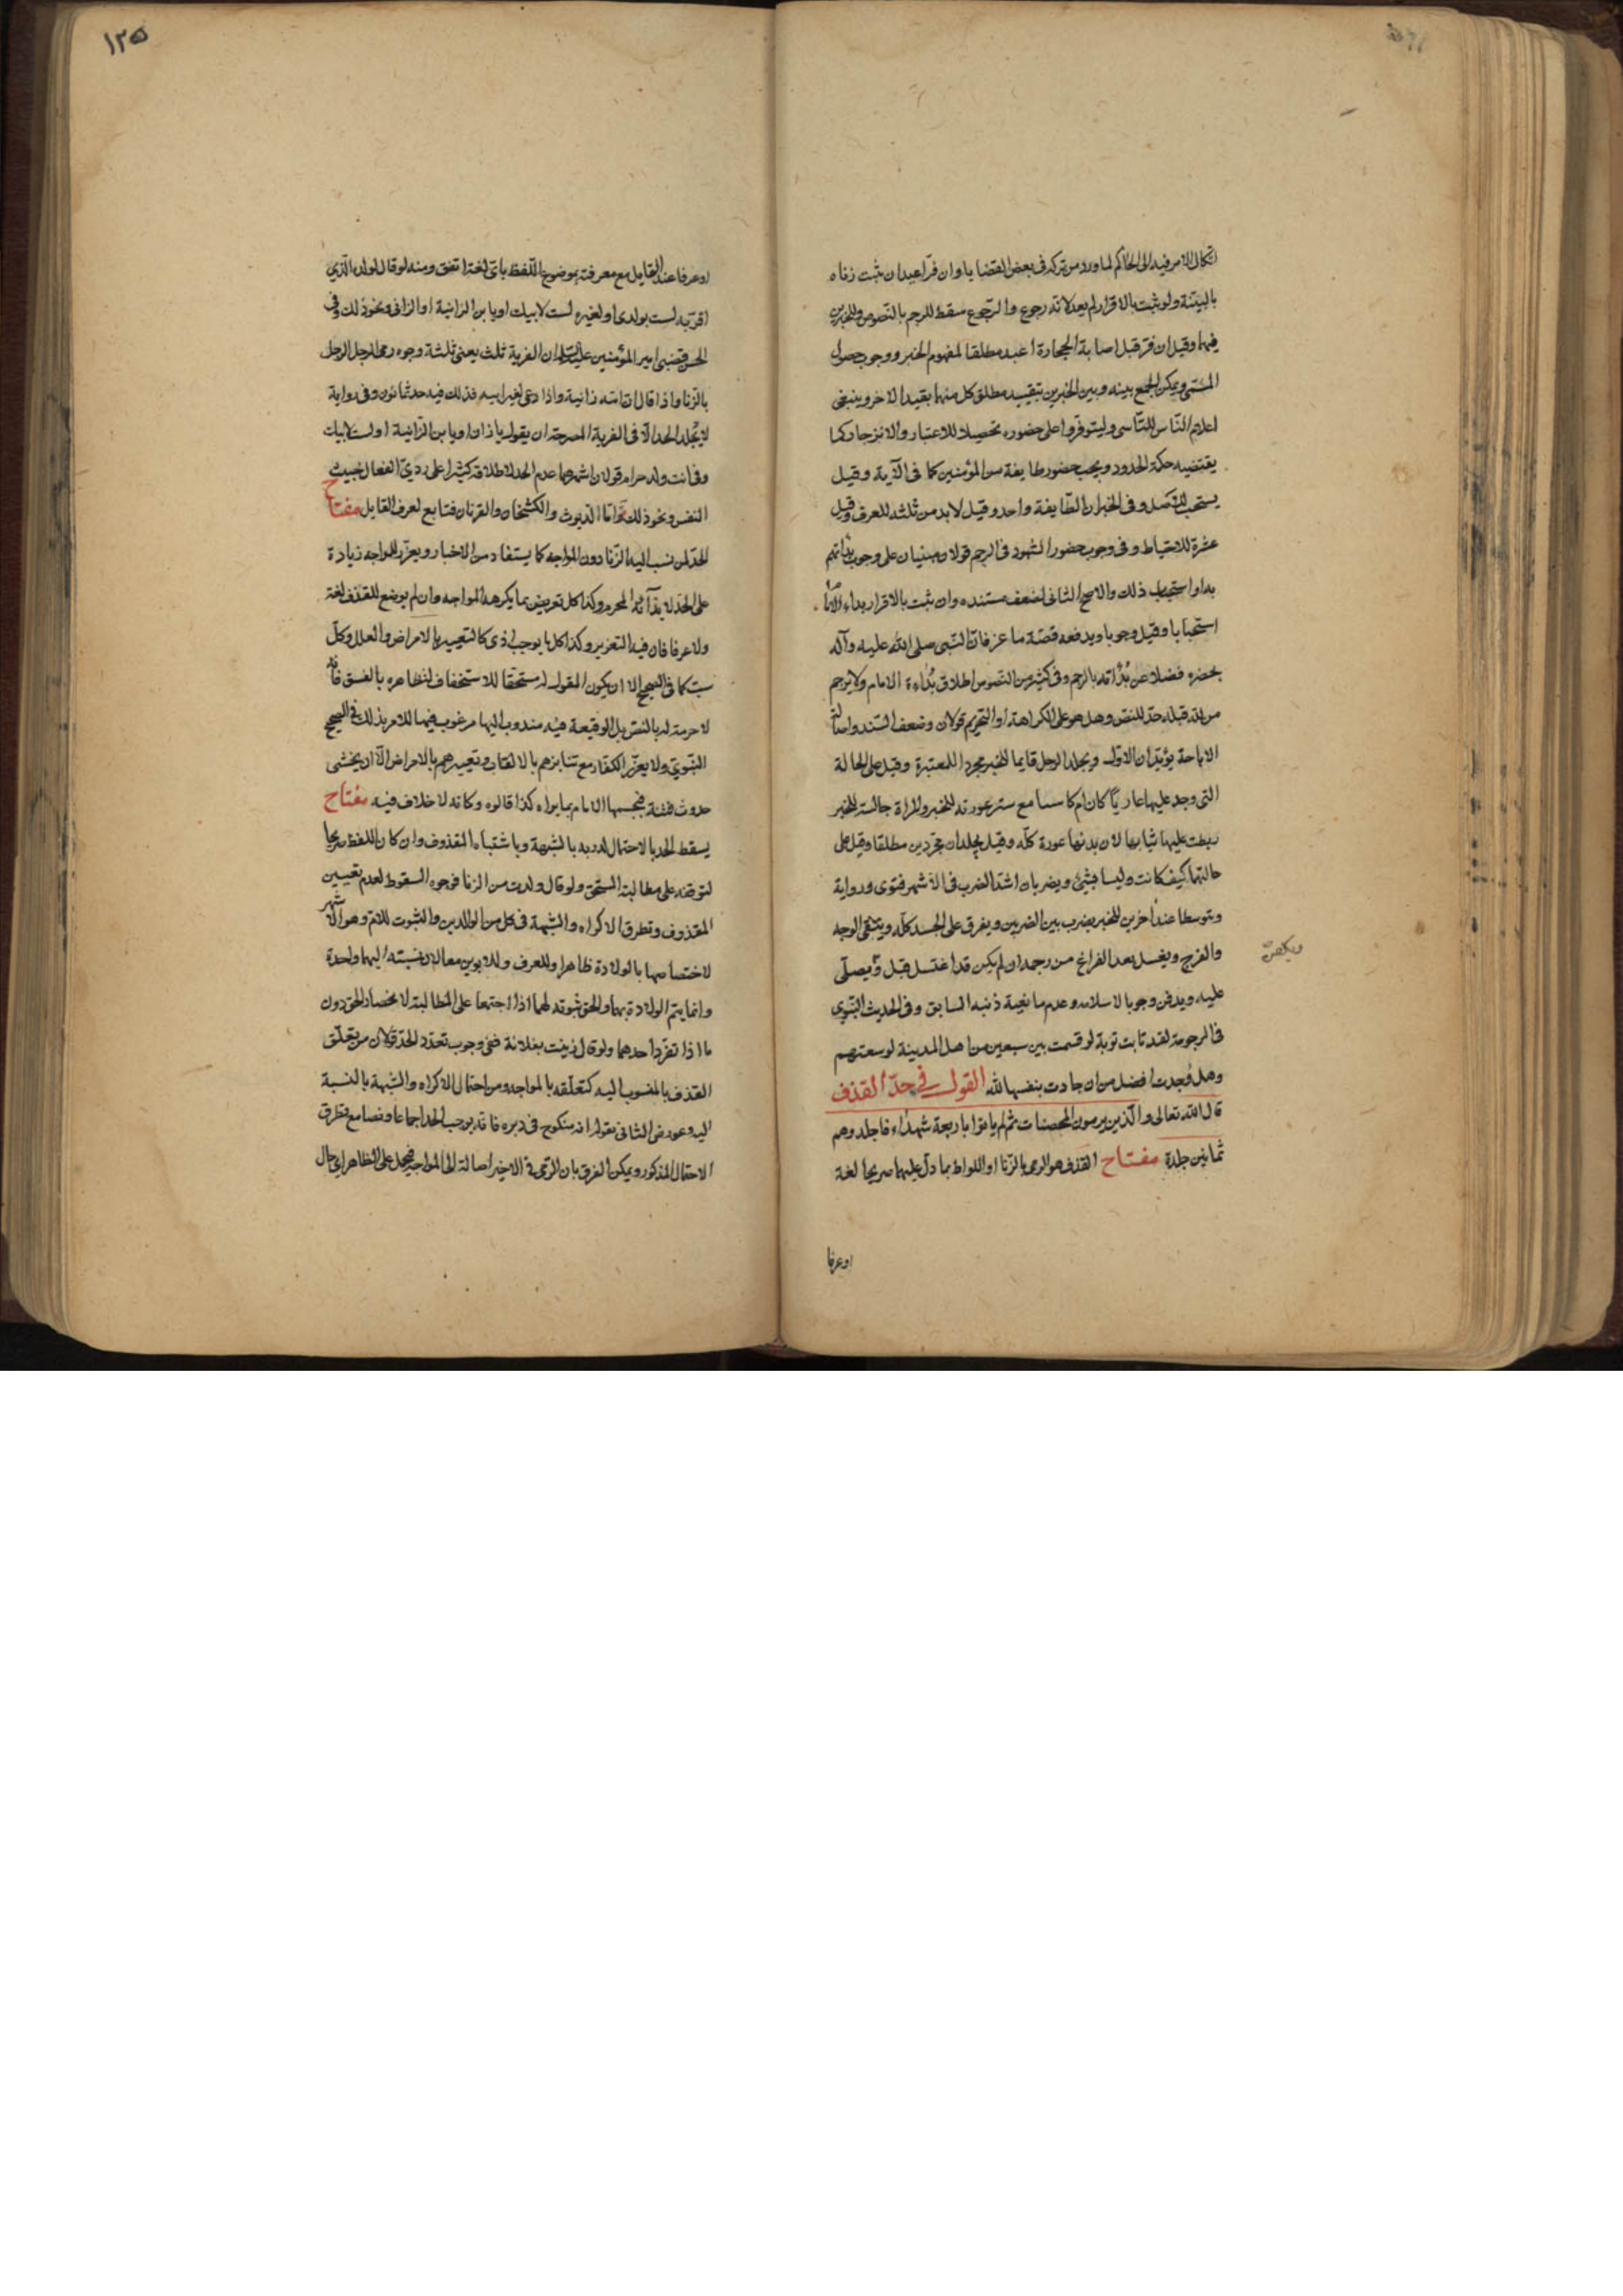 اتكال الامر فيه الى الحاكم لما ورد من تركه فى بعض القضايا وان فرّ اعيد ان ثبت زناه
بالبينة ولو ثبت بالاقرار لم يعد لانه رجوع والرجوع مسقط للرجم بالنصوص وللخبرين
فيهما وقيل ان فر قبل اصابة الحجارة اعيد مطلقا لمفهوم الخبر ووجوب حصول
المسمى ويمكن الجمع بينه وبين الخبرين بتقييد مطلق كل منهما بقيد الاخر وينبغى
اعلام الناس للتأسى وليتوفروا على حضوره تحصيلا للاعتبار والانزجار كما
يقتضيه حكمة الحدود ويجب حضور طايفة من المؤمنين كما فى الآية وقيل
يستحب للاصل وفى الخبر ان الطايفة واحد وقيل لابد من ثلثة للعرف وقيل
عشرة للاحتياط وفى وجوب حضور الشهود فى الرجم قولان مبنيان على وجوب بدأتهم
بدا واستحباب ذلك والاصح الثانى لضعف مستنده وان ثبت بالاقرار بداء الامام
استحبابا وقيل وجوبا ويدفعه قصة ماعز فان النبى صلى الله عليه وآله
يحضره فضلا عن بدأته بالرجم وفى كثير من النصوص اطلاق بداءة الامام ولا يرجم
من لله قبله حد للنص وهل هو على الكراهة او التحريم قولان وضعف السند واصالة
الاباحة يؤيدان الاول ويجلد الرجل قايما للخبر مجردا للمعتبرة وقيل على الحالة
التى وجد عليها عاريا كان ام كاسيا مع ستر عورته للخبر والمراة جالسة للخبر
ربطت عليها ثيابها لان بدنها عورة كله وقيل يجلدان مجردين مطلقا وقيل على
حالتهما كيف كانت وليسا بشئ ويضربان اشد الضرب فى الاشهر فتوى ورواية
ومتوسطا عند آخرين للخبر يضرب بين الضربين ويفرق على الجسد كله ويتقى الوجه
والفرج ويغسل بعد الفراغ من رجمه ان لم يكن قد اغتسل قبل ويصلى
ويكفن
عليه ويدفن وجوبا لاسلامه وعدم مانعية ذنبه السابق وفى الحديث النبوى
فى المرجومة لقد تابت توبة لو قسمت بين سبعين من اهل المدينة لوسعتهم
وهل وجدت افضل من ان جادت بنفسها لله القول فى حدّ القذف
قال الله تعالى والذين يرمون المحصنات ثم لم ياتوا باربعة شهداء فاجلدوهم
ثمانين جلدة مفتاح القذف هو الرمى بالزنا او اللواط بما دل عليهما صريحا لغة
او عرفا
١٢٥
او عرفا عند القايل مع معرفته بموضوع اللفظ باى لغة اتفق ومنه لو قال لولده الذى
اقر به لست بولدى او لغيره لست لابيك او يا بن الزانية او الزانى ونحو ذلك وفى
الحسن قضى امير المؤمنين عليه السلام ان الفرية ثلث يعنى ثلثة وجوه رمى الرجل الرجل
بالزنا واذا قال ان امه زانية واذا دعى لغير ابيه فذلك فيه حد ثمانون وفى رواية
لا يجلد الحد الا فى الفرية المصرحة ان يقول يا زان او يا بن الزانية او لست لابيك
وفى انت ولد حرام قولان اشهرهما عدم الحد لاطلاقه كثيرا على ردىّ الفعال خبيث
النفس ونحو ذلك واما الديوث والكشخان والقرنان فتابع لعرف القايل مفتاح
الحد لمن نسب اليه الزنا دون المواجه كما يستفاد من الاخبار ويعزر للمواجه زيادة
على الحد لايذائه المحرم وكذا كل تعريض بما يكرهه المواجه وان لم يوضع للقذف لغة
ولا عرفا فان فيه التعزير وكذا كل ما يوجب اذى كالتعيير بالامراض والعلل وكل
سبّ كما فى الصحيح الا ان يكون المقول له مستحقا للاستخفاف لتظاهره بالفسق فانه
لا حرمة له بالنص بل الوقيعة فيه مندوب اليها مرغوب فيها للامر بذلك فى الصحيح
النبوى ولا يعزر الكفار مع تنابزهم بالالقاب وتعييرهم بالامراض الا ان يخشى
حدوث فتنة فيحسمها الامام بما يراه كذا قالوه وكانه لا خلاف فيه مفتاح
يسقط الحد بالاحتمال لدرءه بالشبهة وباشتباه المقذوف وان كان اللفظ صريحا
لتوقفه على مطالبة المستحق ولو قال ولدت من الزنا فوجوه السقوط لعدم تعيين
المقذوف وتطرق الاكراه والشبهة فى كل من الوالدين والثبوت للام وهو الاشهر
لاختصاصها بالولادة ظاهرا وللعرف وللابوين معا لان نسبته اليهما واحدة
وانما يتم الولادة بهما والحق ثبوته لهما اذا اجتمعا على المطالبة لانحصار الحق دون
ما اذا تفرد احدهما ولو قال زنيت بفلانة ففى وجوب تعدد الحد قولان من تعلق
القذف بالمنسوب اليه كتعلقه بالمواجه ومن احتمال الاكراه والشبهة بالنسبة
اليه وعورض الثانى بقوله انه منكوح فى دبره فانه يوجب الحد اجماعا ونصا مع تطرق
الاحتمال المذكور ويمكن الفرق بان الرمى فى الاخير اصالة الى المواجه فيحمل على الظاهر اى حال